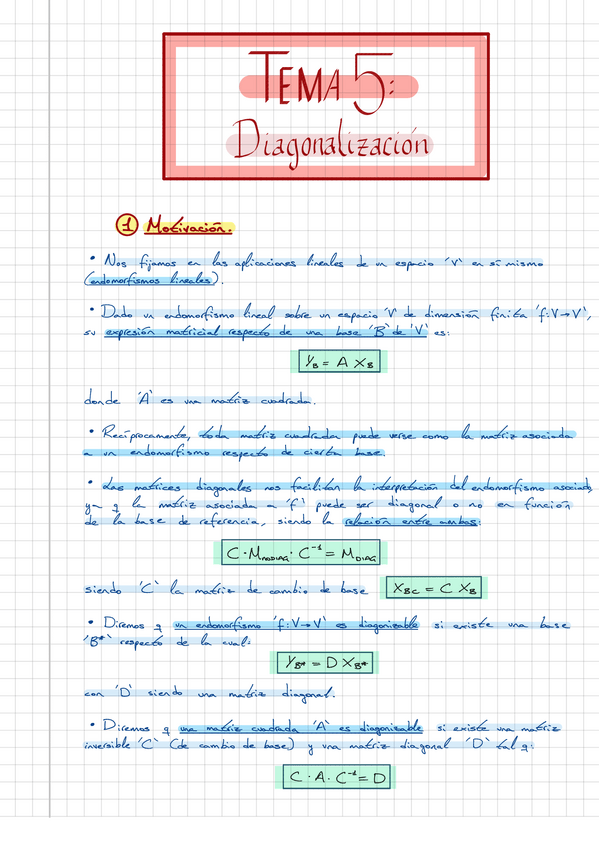 TEMA 5:
Diagonalización
1 Motivación.
• Nos fijamos en las aplicaciones lineales de un espacio 'V' en sí mismo
(endomorfismos lineales).
• Dado un endomorfismo lineal sobre un espacio 'V' de dimensión finita 'f:V→V',
su expresión matricial respecto de una base 'B' de 'V' es:
Y_B = A X_B
donde 'A' es una matriz cuadrada.
• Recíprocamente, toda matriz cuadrada puede verse como la matriz asociada
a un endomorfismo respecto de cierta base.
• Las matrices diagonales nos facilitan la interpretación del endomorfismo asociado,
ya q la matriz asociada a 'f' puede ser diagonal o no en función
de la base de referencia, siendo la relación entre ambas:
C · M_NODIAG · C⁻¹ = M_DIAG
siendo 'C' la matriz de cambio de base X_BC = C X_B
• Diremos q un endomorfismo 'f:V→V' es diagonizable si existe una base
'B*' respecto de la cual:
Y_B* = D X_B*
con 'D' siendo una matriz diagonal.
• Diremos q una matriz cuadrada 'A' es diagonizable si existe una matriz
inversible 'C' (de cambio de base) y una matriz diagonal 'D' tal q:
C · A · C⁻¹ = D